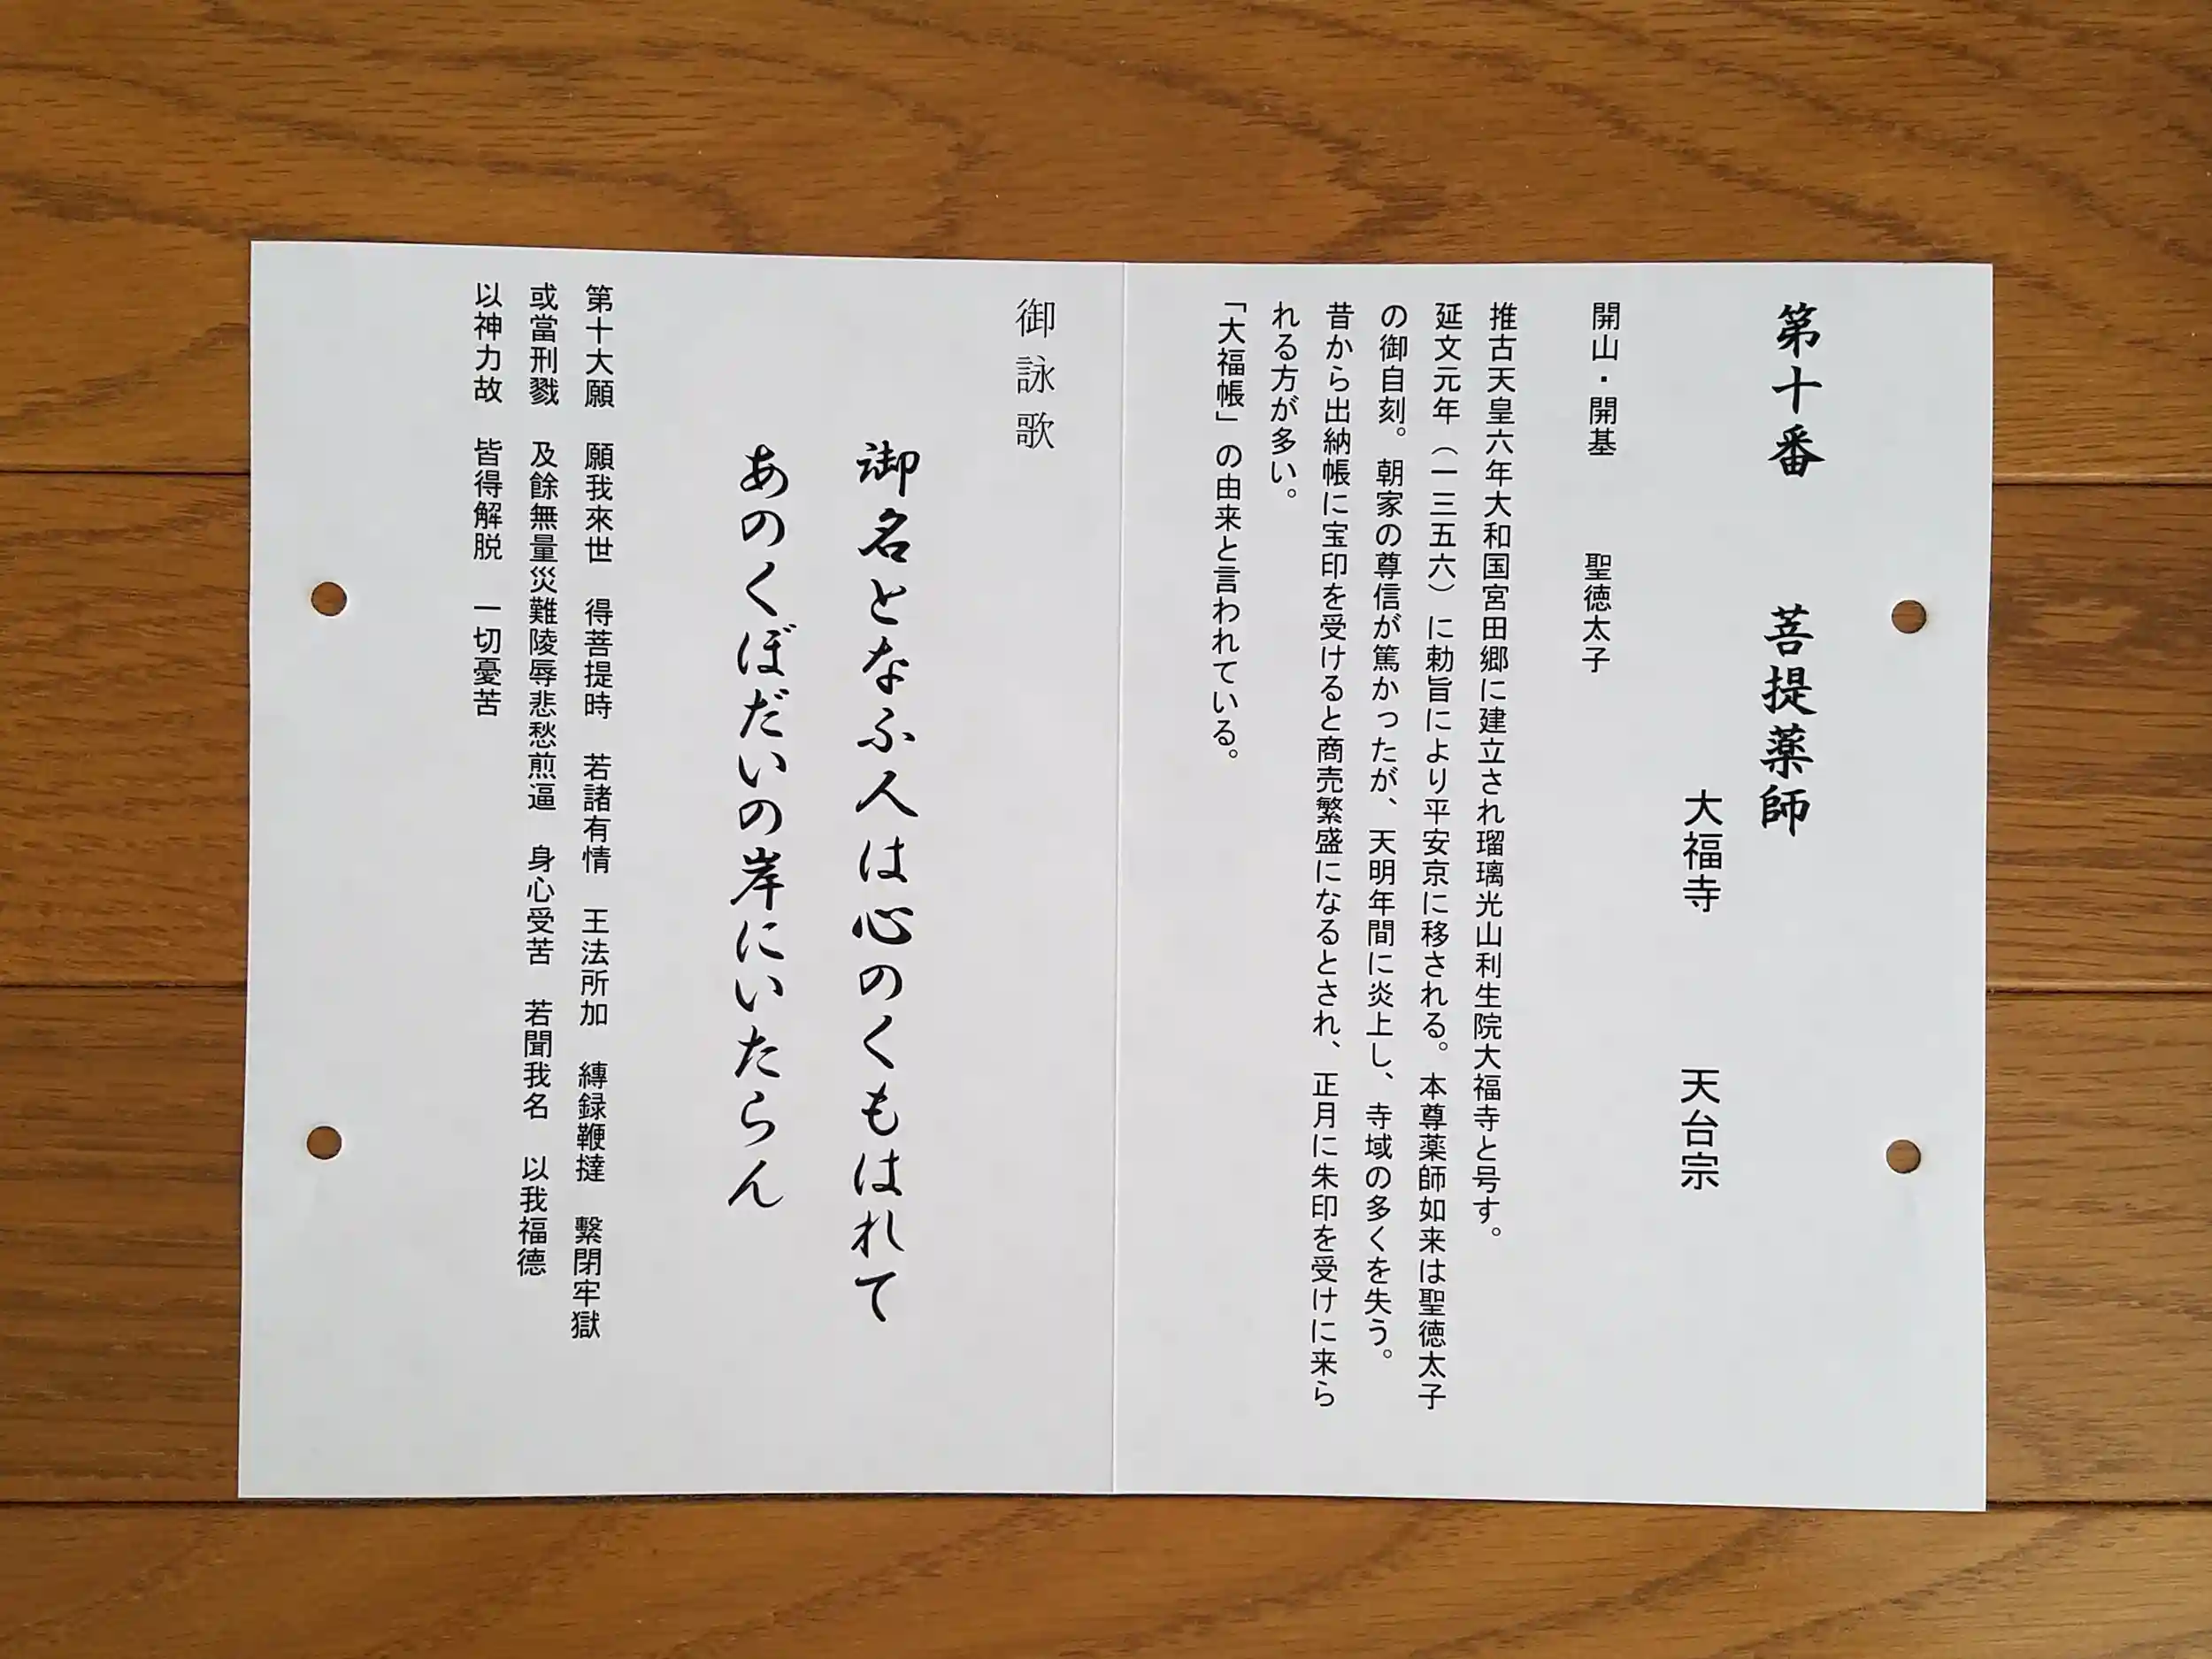 第十番　菩提薬師
大福寺　天台宗
開山・開基　聖徳太子
推古天皇六年大和国宮田郷に建立され瑠璃光山利生院大福寺と号す。
延文元年（一三五六）に勅旨により平安京に移される。本尊薬師如来は聖徳太子
の御自刻。朝家の尊信が篤かったが、天明年間に炎上し、寺域の多くを失う。
昔から出納帳に宝印を受けると商売繁盛になるとされ、正月に朱印を受けに来ら
れる方が多い。
「大福帳」の由来と言われている。
御詠歌
御名となふ人は心のくもはれて
あのくぼだいの岸にいたらん
第十大願　願我來世　得菩提時　若諸有情　王法所加　縛録鞭撻　繫閉牢獄
或當刑戮　及餘無量災難陵辱悲愁煎逼　身心受苦　若聞我名　以我福德
以神力故　皆得解脱　一切憂苦